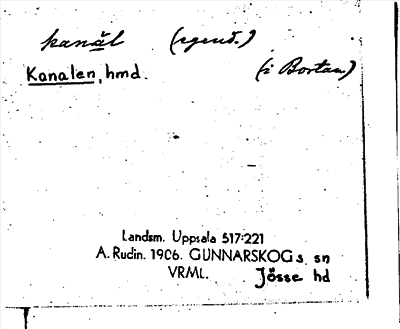 kanäl (egend.)
Kanalen, hmd. (i Bortan)
Landsm. Uppsala 517:221
A. Rudin. 1906. GUNNARSKOGs sn
VRML. Jösse hd